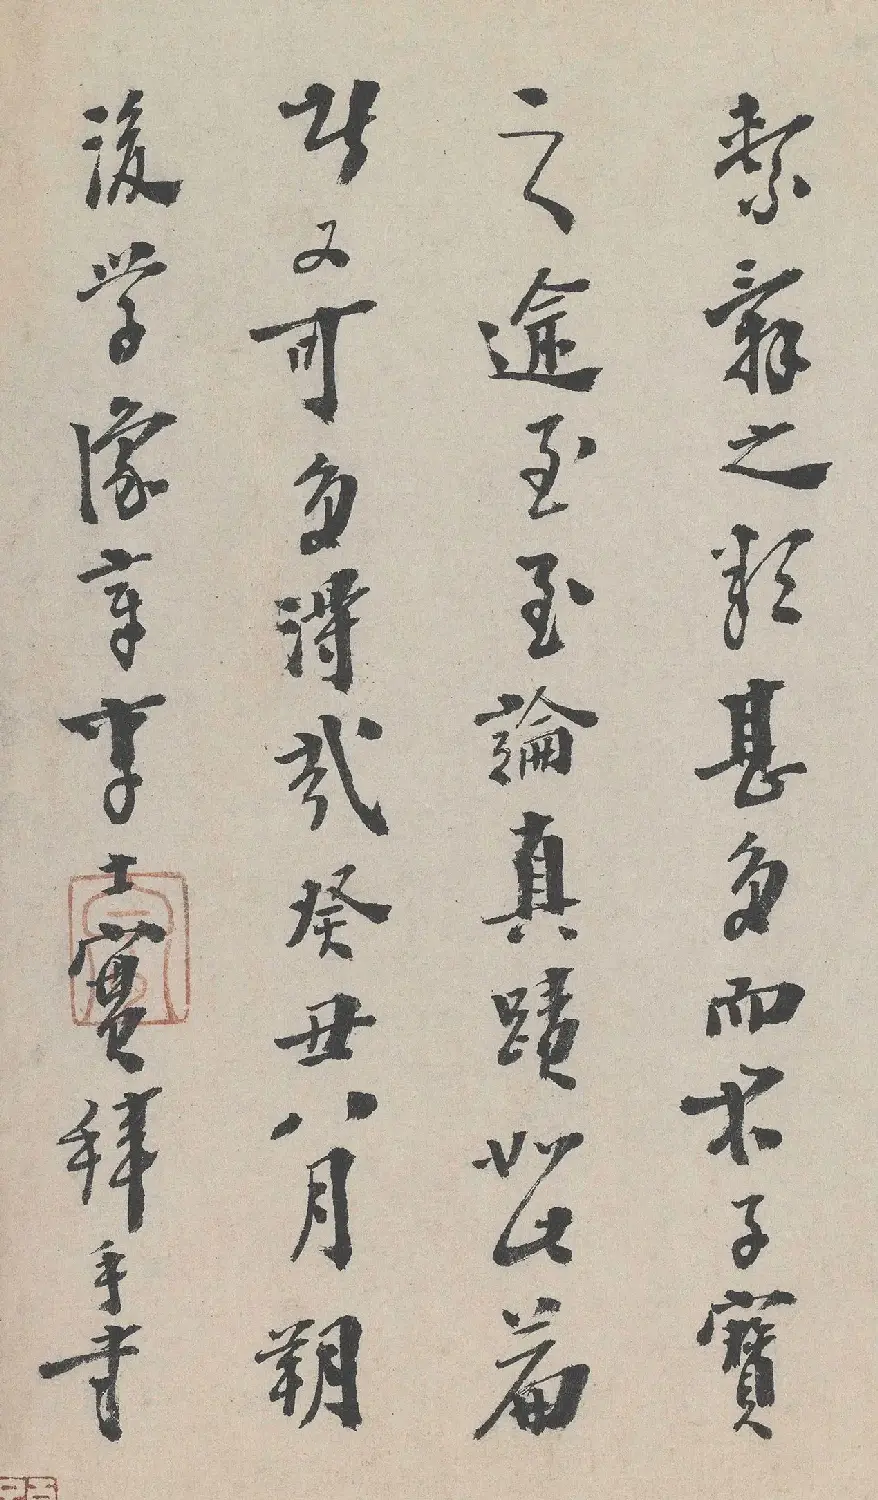 繫辭之類甚多而子寶
之逾至至論真蹟如此篇
者又可多得哉癸丑八月朔
後學豫章李士實拜手書